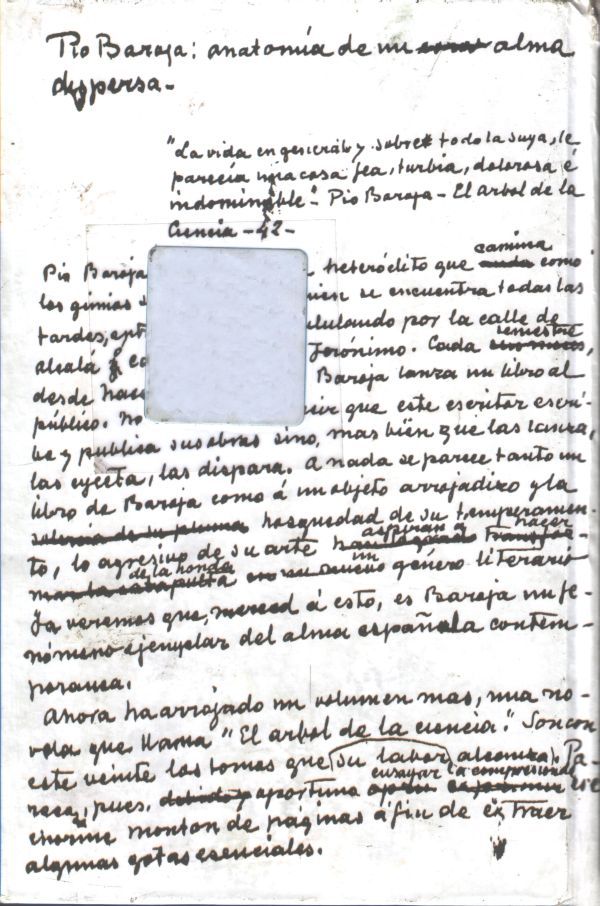 Pío Baroja: anatomía de un alma
dispersa.-
"La vida en general y sobre todo la suya, le
parecía una cosa fea, turbia, dolorosa é
indominable". Pio Baroja - El arbol de la
Ciencia - 42 -
Pío Baroja heteróclito que camina como
los gimios se encuentra todas las
tardes, ululando por la calle de
alcalá Jerónimo. Cada semestre,
desde hace Baroja lanza un libro al
público. No que este escritor escri-
be y publica sus obras sino, mas bien que las lanza,
las eyecta, las dispara. A nada se parece tanto un
libro de Baroja como á un objeto arrojadizo y la
hosquedad de su temperamen-
to, lo agresivo de su arte aspiran a hacer
de la honda un género literario
Ya veremos que, merced á esto, es Baroja un fe-
nómeno ejemplar del alma española contem-
poranea.
Ahora ha arrojado un volumen mas, una no-
vela que llama "El arbol de la ciencia". Son con
este veinte los tomos que su labor alcanza. Pa-
rece, pues, aportuna ensayar la compresion de ese
enorme monton de páginas á fin de extraer
algunas gotas esenciales.